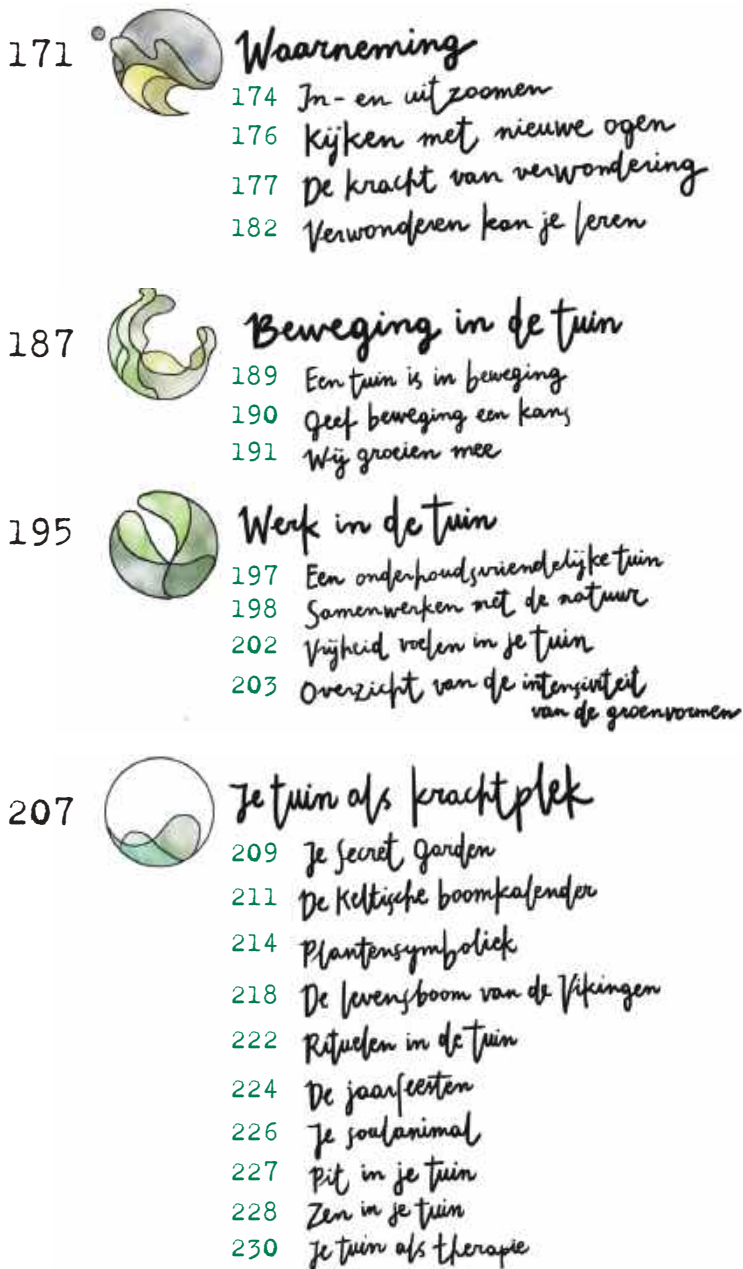 171 Waarneming
174 In- en uitzoomen
176 Kijken met nieuwe ogen
177 De kracht van verwondering
182 Verwonderen kan je leren
187 Beweging in de tuin
189 Een tuin is in beweging
190 Geef beweging een kans
191 Wij groeien mee
195 Werk in de tuin
197 Een onderhoudsvriendelijke tuin
198 Samenwerken met de natuur
202 Vrijheid voelen in je tuin
203 Overzicht van de intensiviteit
van de groenvormen
207 Je tuin als krachtplek
209 Je secret garden
211 De Keltische boomkalender
214 Plantensymboliek
218 De levensboom van de Vikingen
222 Rituelen in de tuin
224 De jaarfeesten
226 Je soulanimal
227 Pit in je tuin
228 Zen in je tuin
230 Je tuin als therapie